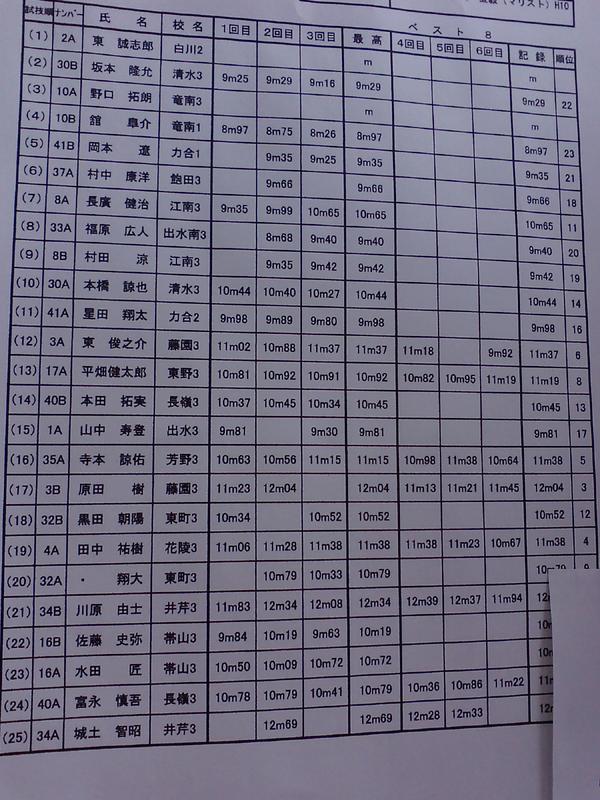 (マリスト) H10
ベスト8
試技順 ナンバー 氏名 校名 1回目 2回目 3回目 最高 4回目 5回目 6回目 記録 順位
(1) 2A 東 誠志郎 白川2 m m
(2) 30B 坂本 隆允 清水3 9m25 9m29 9m16 9m29 9m29 22
(3) 10A 野口 拓朗 竜南3 m m
(4) 10B 舘 章介 竜南1 8m97 8m75 8m26 8m97 8m97 23
(5) 41B 岡本 遼 力合1 9m35 9m25 9m35 9m35 21
(6) 37A 村中 康洋 飽田3 9m66 9m66 9m66 18
(7) 8A 長廣 健治 江南3 9m35 9m99 10m65 10m65 10m65 11
(8) 33A 福原 広人 出水南3 8m68 9m40 9m40 9m40 20
(9) 8B 村田 涼 江南3 9m35 9m42 9m42 9m42 19
(10) 30A 本橋 諒也 清水3 10m44 10m40 10m27 10m44 10m44 14
(11) 41A 星田 翔太 力合2 9m98 9m89 9m80 9m98 9m98 16
(12) 3A 東 俊之介 藤園3 11m02 10m88 11m37 11m37 11m18 9m92 11m37 6
(13) 17A 平畑健太郎 東野3 10m81 10m92 10m91 10m92 10m82 10m95 11m19 11m19 8
(14) 40B 本田 拓実 長嶺3 10m37 10m45 10m34 10m45 10m45 13
(15) 1A 山中 寿登 出水3 9m81 9m30 9m81 9m81 17
(16) 35A 寺本 諒佑 芳野3 10m63 10m56 11m15 11m15 10m98 11m38 10m64 11m38 5
(17) 3B 原田 樹 藤園3 11m23 12m04 12m04 11m13 11m21 11m45 12m04 3
(18) 32B 黒田 朝陽 東町3 10m34 10m52 10m52 10m52 12
(19) 4A 田中 祐樹 花陵3 11m06 11m28 11m38 11m38 11m38 11m23 10m67 11m38 4
(20) 32A ・ 翔大 東町3 10m79 10m33 10m79 10m79 9
(21) 34B 川原 由士 井芹3 11m83 12m34 12m08 12m34 12m39 12m37 11m94 12m
(22) 16B 佐藤 史弥 帯山3 9m84 10m19 9m63 10m19 10m
(23) 16A 水田 匠 帯山3 10m50 10m09 10m72 10m72 10m
(24) 40A 富永 慎吾 長嶺3 10m78 10m79 10m41 10m79 10m36 10m86 11m22 11m
(25) 34A 城土 智昭 井芹3 12m69 12m69 12m28 12m33 12m